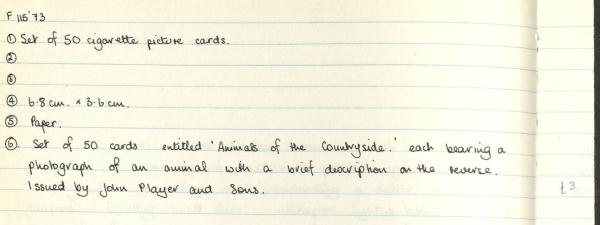 F 115'73
① Set of 50 cigarette picture cards.
②
③
④ 6.8 cm. × 3.6 cm.
⑤ Paper.
⑥. Set of 50 cards entitled 'Animals of the Countryside.' each bearing a
photograph of an animal with a brief description on the reverse.
Issued by John Player and Sons.
£3